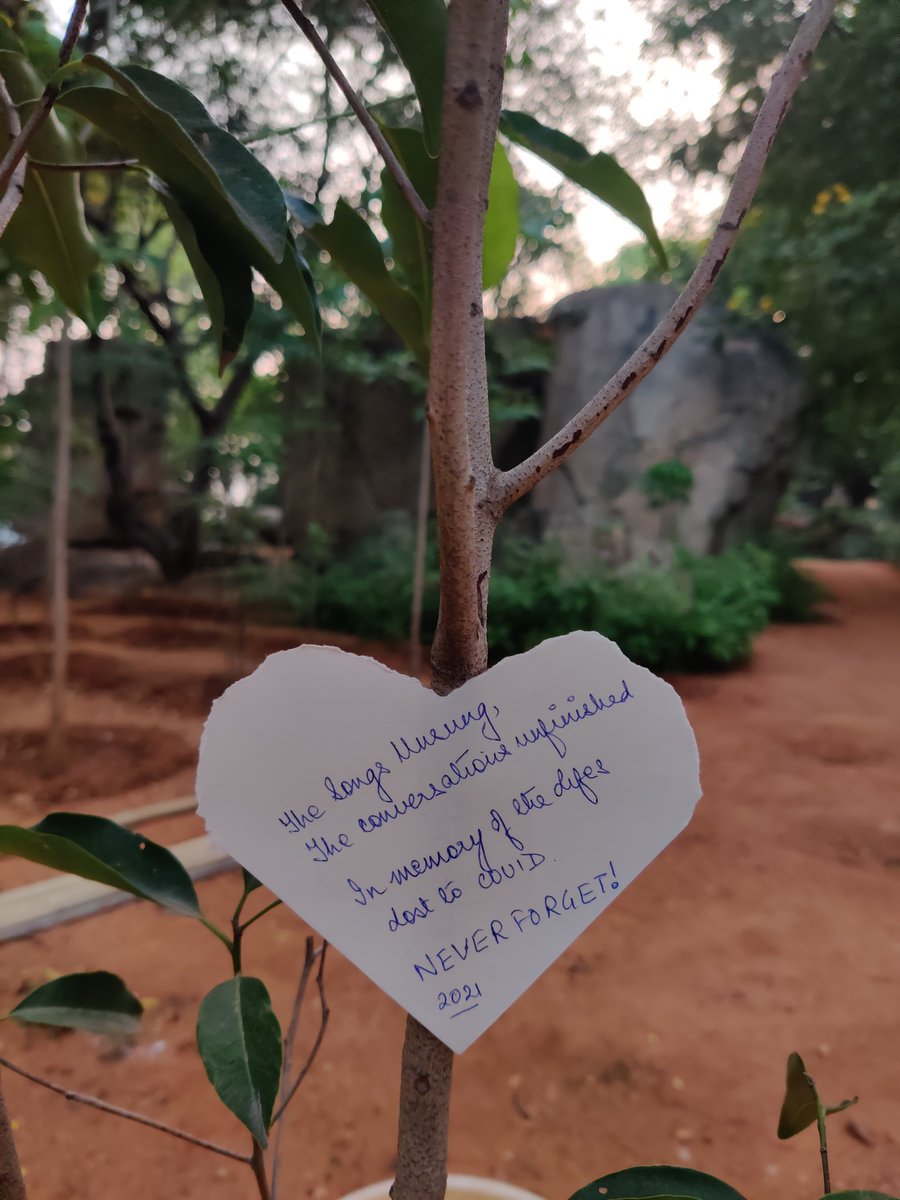 The Songs Unsung,
The conversations unfinished
In memory of the lifes
lost to COVID.
NEVER FORGET!
2021